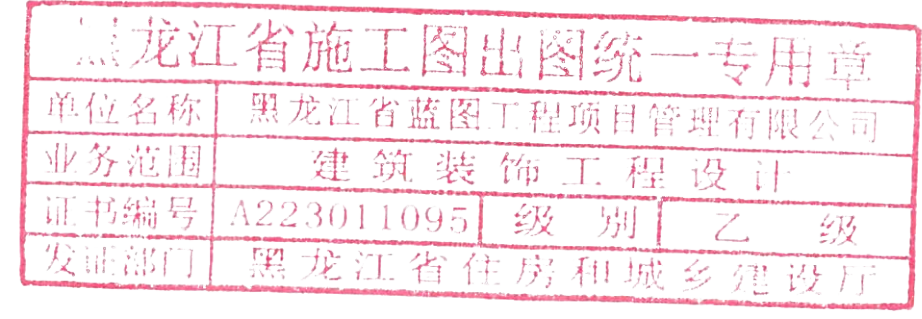 黑龙江省施工图出图统一专用章
单位名称 黑龙江省蓝图工程项目管理有限公司
业务范围 建筑装饰工程设计
证书编号 A223011095 级别 乙级
发证部门 黑龙江省住房和城乡建设厅